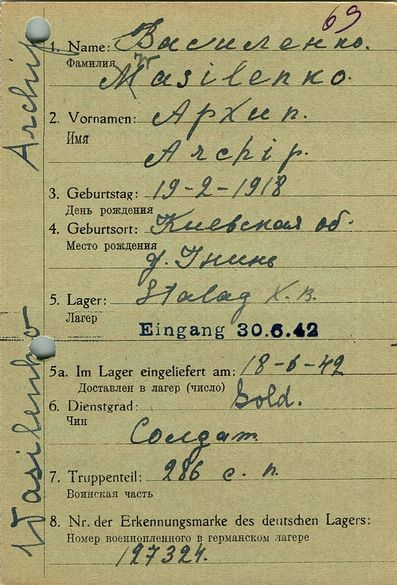 69
1. Name: Василенко.
Фамилия Wasilenko.
2. Vornamen: Архип.
Имя
Archip.
3. Geburtstag: 19-2-1918
День рождения
4. Geburtsort: Киевская об.
Место рождения
д. Гнинь
5. Lager: Stalag X. B.
Лагер
Eingang 30.6.42
5a. Im Lager eingeliefert am: 18-6-42
Доставлен в лагер (число)
6. Dienstgrad: Sold.
Чин
Солдат
7. Truppenteil: 286 с. п.
Воинская часть
8. Nr. der Erkennungsmarke des deutschen Lagers:
Номер военнопленного в германском лагере
127324.
Wasilenko Archip